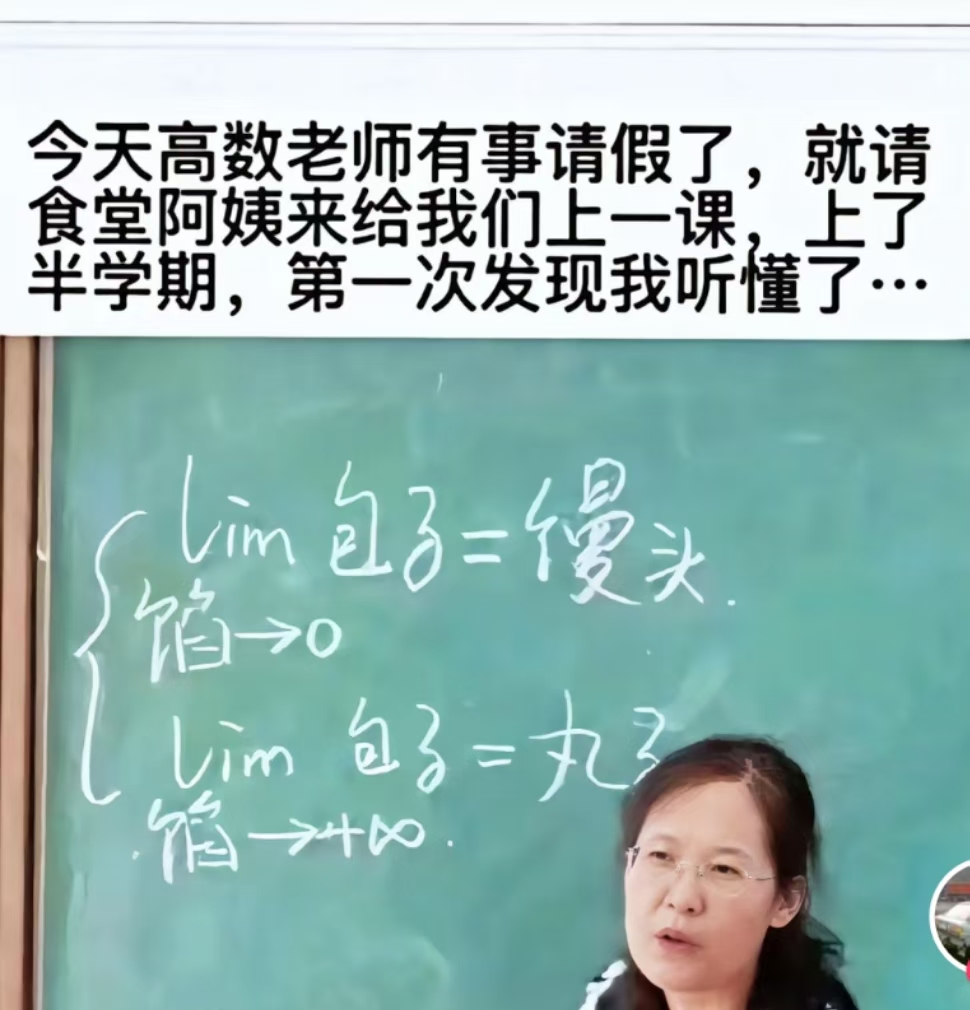 今天高数老师有事请假了，就请
食堂阿姨来给我们上一课，上了
半学期，第一次发现我听懂了…
lim 包子=馒头.
馅→0
lim 包子=丸子
馅→+∞.